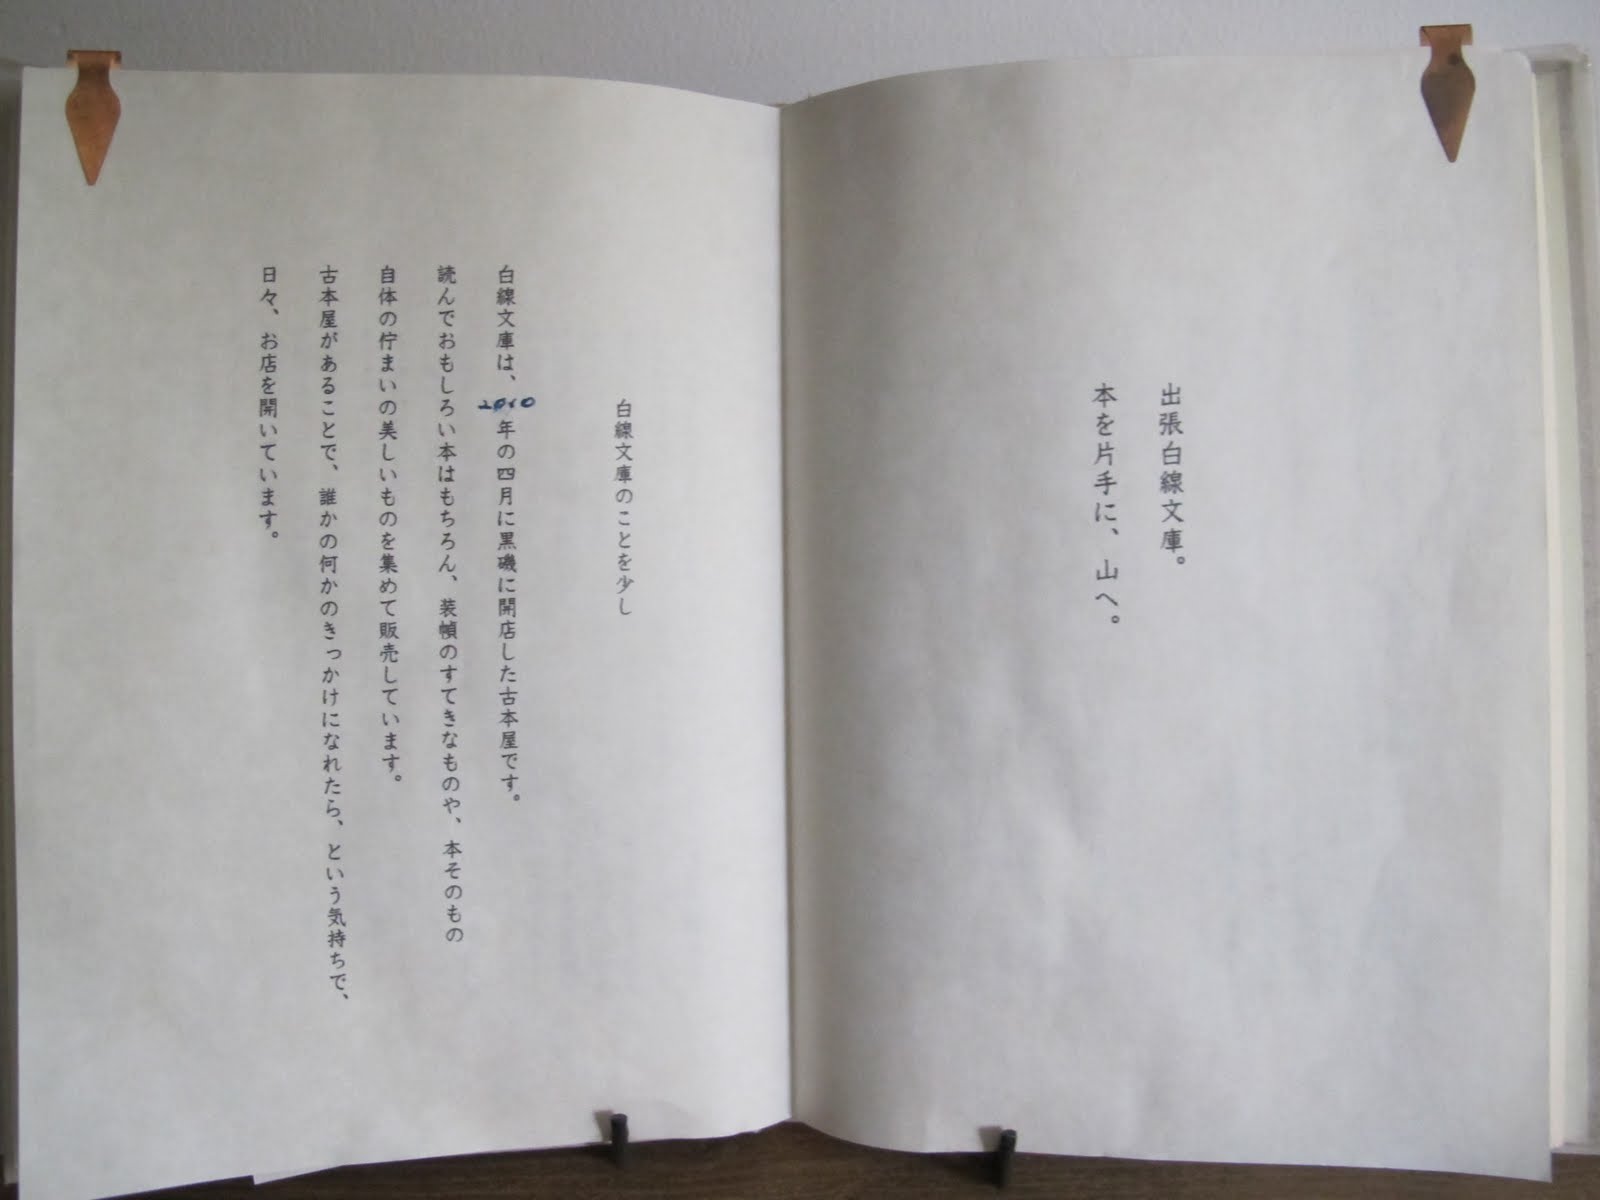 出張白線文庫。
本を片手に、山へ。
白線文庫のことを少し
白線文庫は、2010年の四月に黒磯に開店した古本屋です。
読んでおもしろい本はもちろん、装幀のすてきなものや、本そのもの
自体の佇まいの美しいものを集めて販売しています。
古本屋があることで、誰かの何かのきっかけになれたら、という気持ちで、
日々、お店を開いています。